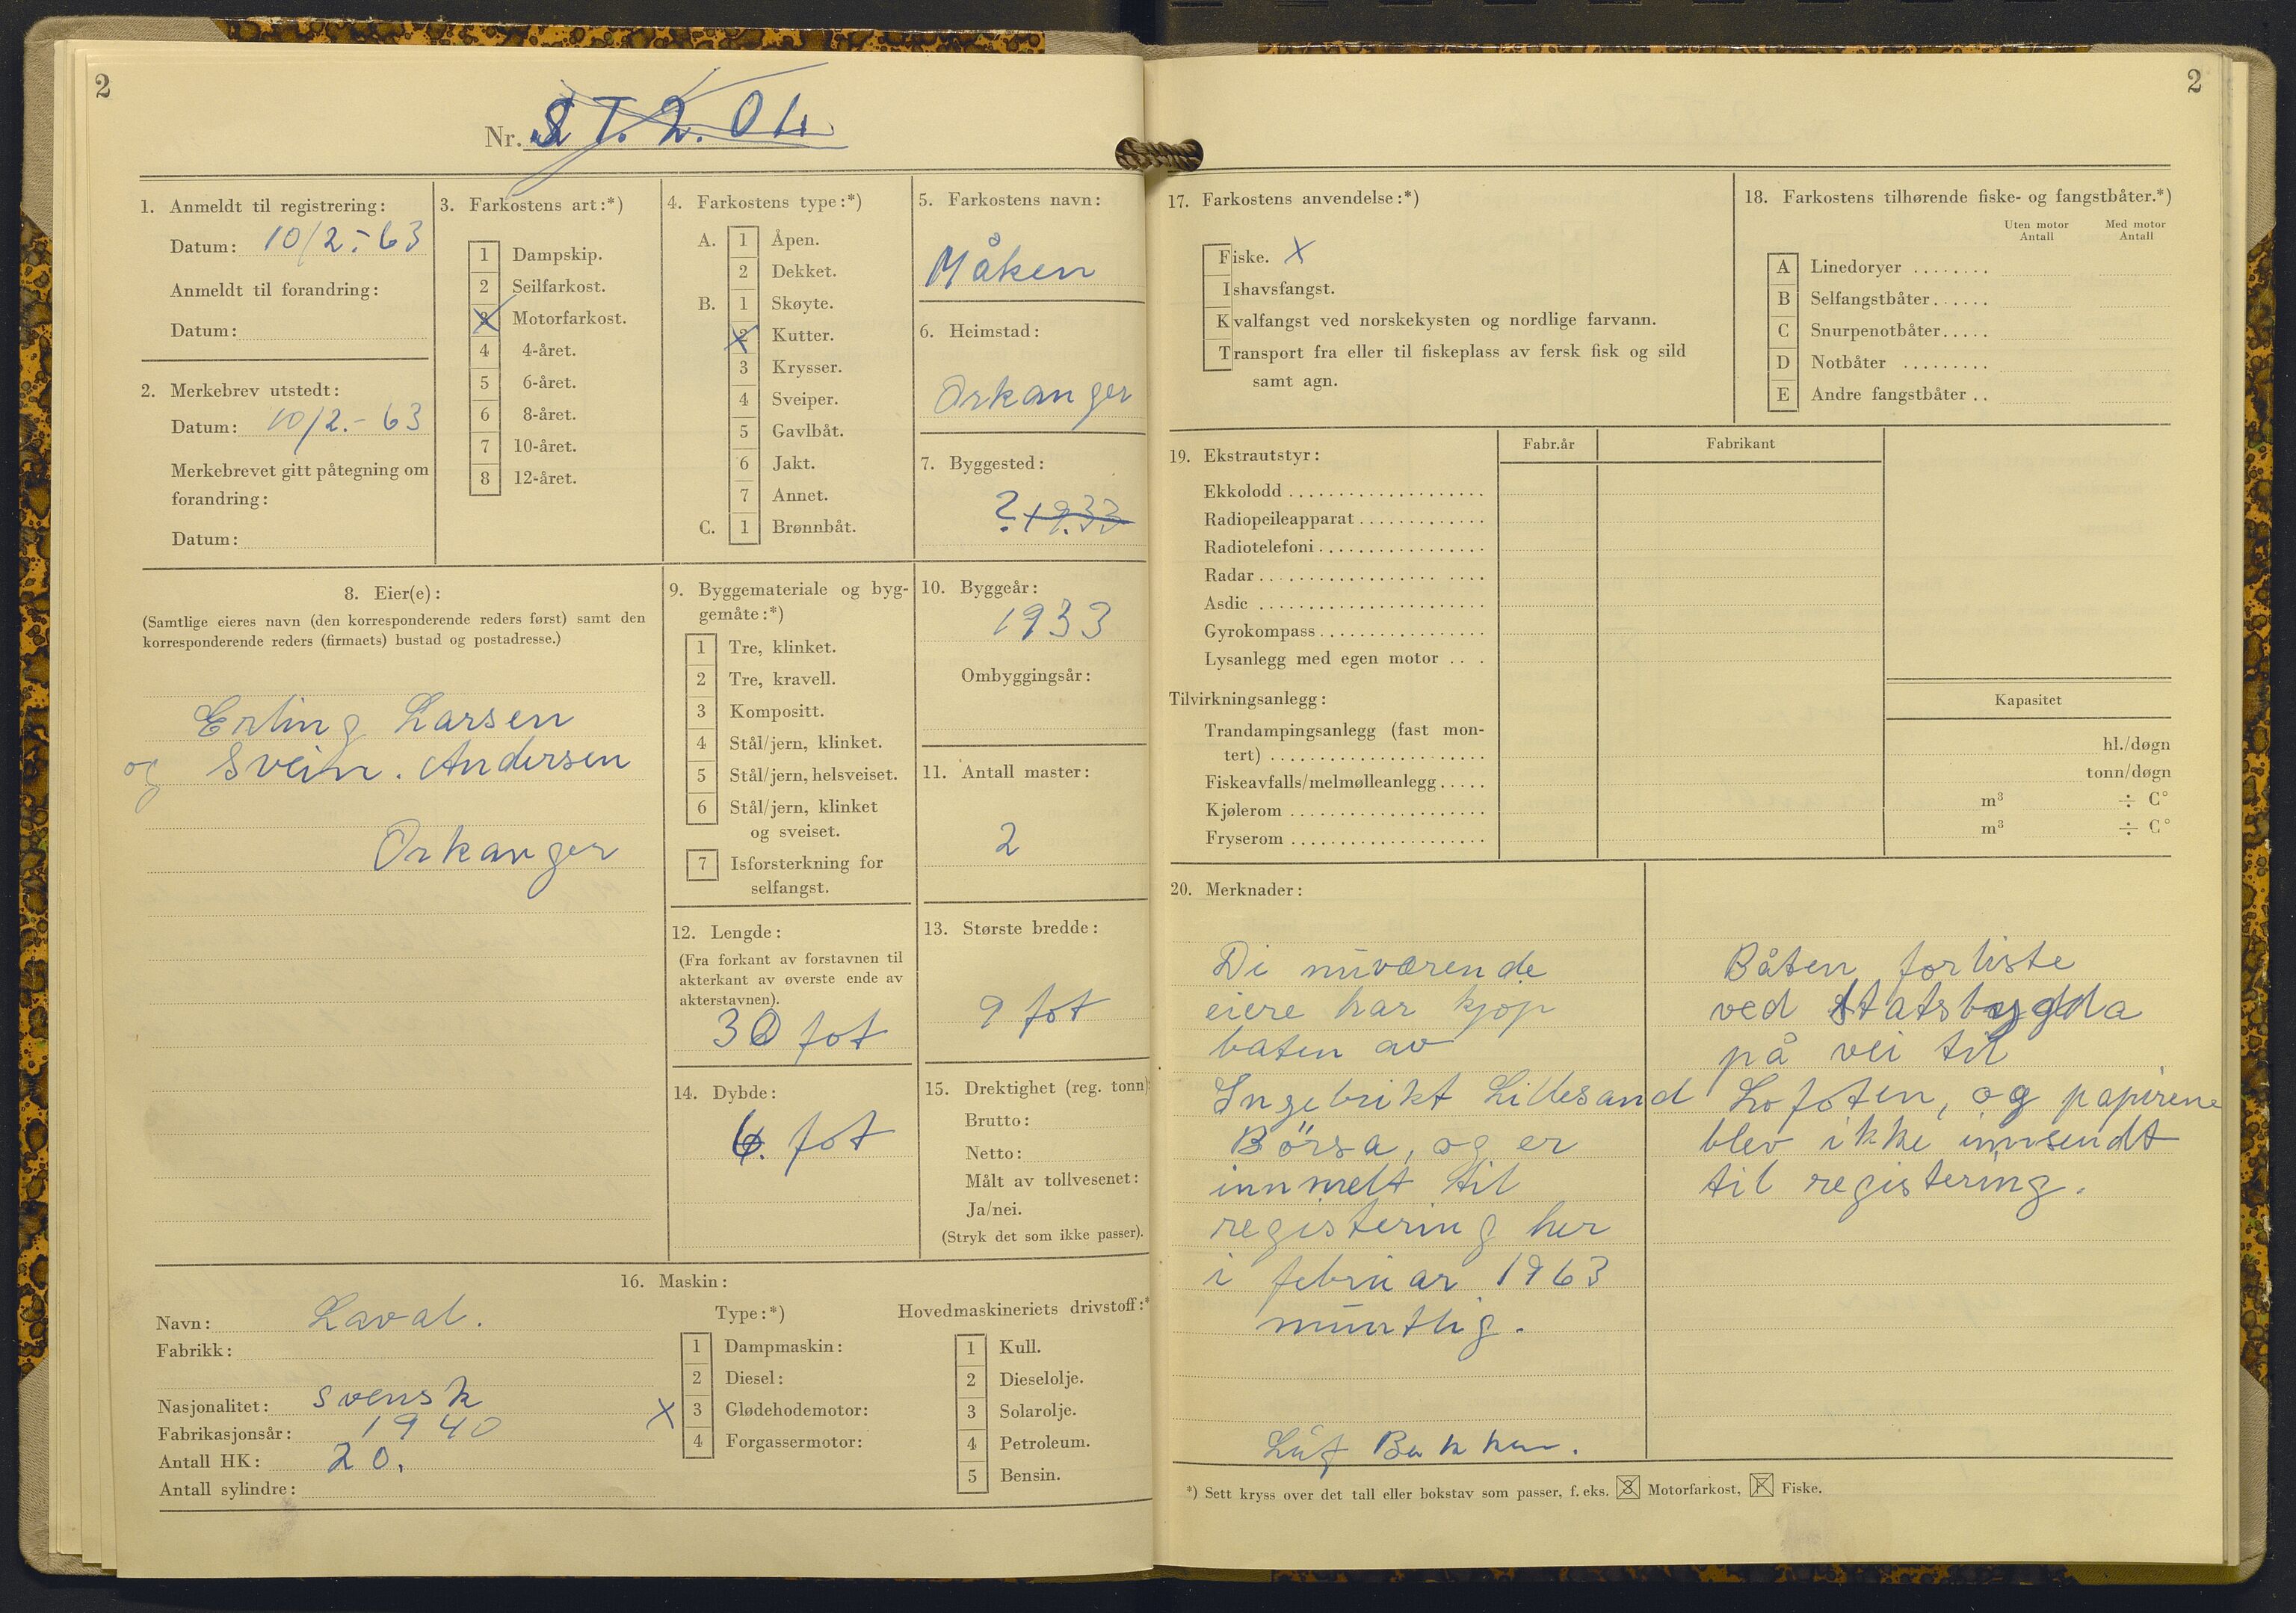 2
Nr. ST. 2. Oh.
1. Anmeldt til registrering:
Datum: 10/2.-63
Anmeldt til forandring:
Datum:
2. Merkebrev utstedt:
Datum: 10/2.-63
Merkebrevet gitt påtegning om
forandring:
Datum:
3. Farkostens art:*)
1 Dampskip.
2 Seilfarkost.
3 Motorfarkost.
4 4-året.
5 6-året.
6 8-året.
7 10-året.
8 12-året.
4. Farkostens type:*)
A. 1 Åpen.
2 Dekket.
B. 1 Skøyte.
2 Kutter.
3 Krysser.
4 Sveiper.
5 Gavlbåt.
6 Jakt.
7 Annet.
C. 1 Brønnbåt.
5. Farkostens navn:
Måken
6. Heimstad:
Orkanger
7. Byggested:
? 1933
8. Eier(e):
(Samtlige eieres navn (den korresponderende reders først) samt den
korresponderende reders (firmaets) bustad og postadresse.)
Erling Larsen
og Svein. Andersen
Orkanger
9. Byggemateriale og byg-
gemåte:*)
1 Tre, klinket.
2 Tre, kravell.
3 Kompositt.
4 Stål/jern, klinket.
5 Stål/jern, helsveiset.
6 Stål/jern, klinket
og sveiset.
7 Isforsterkning for
selfangst.
10. Byggeår:
1933
Ombyggingsår:
11. Antall master:
2
12. Lengde:
(Fra forkant av forstavnen til
akterkant av øverste ende av
akterstavnen).
30 fot
13. Største bredde:
9 fot
14. Dybde:
6. fot
15. Drektighet (reg. tonn):
Brutto:
Netto:
Målt av tollvesenet:
Ja/nei.
(Stryk det som ikke passer).
16. Maskin:
Navn: Laval.
Fabrikk:
Nasjonalitet: svensk
Fabrikasjonsår: 1940
Antall HK: 20.
Antall sylindre:
Type:*)
1 Dampmaskin:
2 Diesel:
X 3 Glødehodemotor:
4 Forgassermotor:
Hovedmaskineriets drivstoff:*
1 Kull.
2 Dieselolje.
3 Solarolje.
4 Petroleum.
5 Bensin.
2
17. Farkostens anvendelse:*)
Fiske. X
Ishavsfangst.
Kvalfangst ved norskekysten og nordlige farvann.
Transport fra eller til fiskeplass av fersk fisk og sild
samt agn.
18. Farkostens tilhørende fiske- og fangstbåter.*)
Uten motor Med motor
Antall Antall
A Linedoryer
B Selfangstbåter
C Snurpenotbåter
D Notbåter
E Andre fangstbåter
19. Ekstrautstyr: Fabr.år Fabrikant
Ekkolodd
Radiopeileapparat
Radiotelefoni
Radar
Asdic
Gyrokompass
Lysanlegg med egen motor
Tilvirkningsanlegg: Kapasitet
Trandampingsanlegg (fast mon-
tert) hl./døgn
Fiskeavfalls/melmølleanlegg tonn/døgn
Kjølerom m³ ÷ C°
Fryserom m³ ÷ C°
20. Merknader:
Di nüværende
eiere har kjöp
baten av
Ingebrikt Lillesand
Börsa, og er
innmelt til
registering her
i februar 1963
müntlig.
Bakken.
Båten forliste
ved Statsbygda
på vei til
Lofoten, og papirene
blev ikke innsendt
til registering.
*) Sett kryss over det tall eller bokstav som passer, f. eks. 3 Motorfarkost, F Fiske.